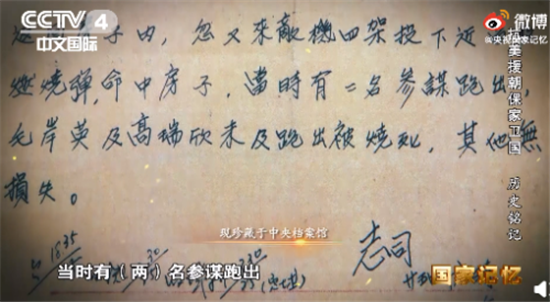 CCTV 4
中文国际
微博
@央视国家记忆
子内,忽又来敵機四架投下近
燃烧弹,命中房子,當時有二名参謀跑出,
毛岸英及高瑞欣未及跑出被烧死,其他無
損失。
抗美援朝保家卫国 历史铭记
现珍藏于中央档案馆
志司
当时有(两)名参谋跑出
国家记忆